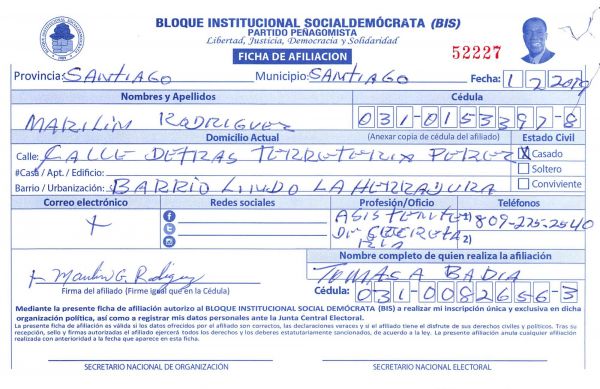 BLOQUE INSTITUCIONAL SOCIALDEMÓCRATA (BIS)
PARTIDO PEÑAGOMISTA
Libertad, Justicia, Democracia y Solidaridad
FICHA DE AFILIACION
52227
Provincia: SANTIAGO Municipio: SANTIAGO Fecha: 1/2/2019
Nombres y Apellidos Cédula
MARILIN RODRIGUEZ 031-0153397-8
Domicilio Actual (Anexar copia de cédula del afiliado) Estado Civil
Calle: CALLE DETRAS FERRETERIA PEREZ X Casado
#Casa / Apt. / Edificio: Soltero
Barrio / Urbanización: BARRIO LINDO LA HERRADURA Conviviente
Correo electrónico Redes sociales Profesión/Oficio Teléfonos
X ASISTENTE 1) 809-225-2540
DE SECRETA 2)
RIA
Nombre completo de quien realiza la afiliación
TOMAS A BADIA
Firma del afiliado (Firme igual que en la Cédula) Cédula: 031-0082656-3
Mediante la presente ficha de afiliación autorizo al BLOQUE INSTITUCIONAL SOCIAL DEMÓCRATA (BIS) a realizar mi inscripción única y exclusiva en dicha
organización política, así como a registrar mis datos personales ante la Junta Central Electoral.
La presente ficha de afiliación es válida si los datos ofrecidos por el afiliado son correctos, las declaraciones veraces y si el afiliado tiene el disfrute de sus derechos civiles y políticos. Tras su
recepción, sello y firmas autorizadas el afiliado ejercerá todos los derechos y los deberes estatutariamente sancionados, de acuerdo a la ley. La presente afiliación anula cualquier afiliación
realizada con anterioridad a la fecha que aparece en esta ficha.
SECRETARIO NACIONAL DE ORGANIZACIÓN SECRETARIO NACIONAL ELECTORAL